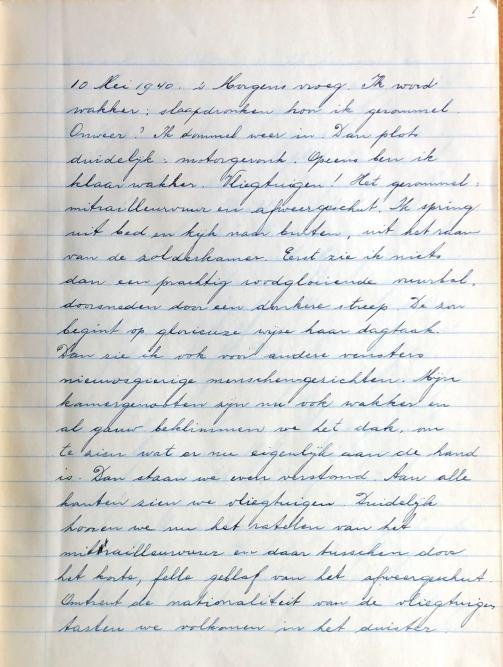 1
10 Mei 1940. 's Morgens vroeg. Ik word
wakker; slaapdronken hoor ik gerommel.
Onweer? Ik dommel weer in. Dan plots
duidelijk: motorgeronk. Opeens ben ik
klaar wakker. Vliegtuigen! Het gerommel:
mitrailleurvuur en afweergeschut. Ik spring
uit bed en kijk naar buiten, uit het raam
van de zolderkamer. Eerst zie ik niets
dan een prachtig roodgloeiende vuurbal,
doorsneden door een donkere streep. De zon
begint op glorieuze wijze haar dagtaak.
Dan zie ik ook voor andere vensters
nieuwsgierige menschengezichten. Mijn
kamergenooten zijn nu ook wakker en
al gauw beklimmen we het dak, om
te zien wat er nu eigenlijk aan de hand
is. Dan staan we even verstomd. Aan alle
kanten zien we vliegtuigen. Duidelijk
hooren we nu het ratelen van het
mitrailleurvuur en daar tusschen door
het korte, felle geblaf van het afweergeschut.
Omtrent de nationaliteit van de vliegtuigen
tasten we volkomen in het duister.